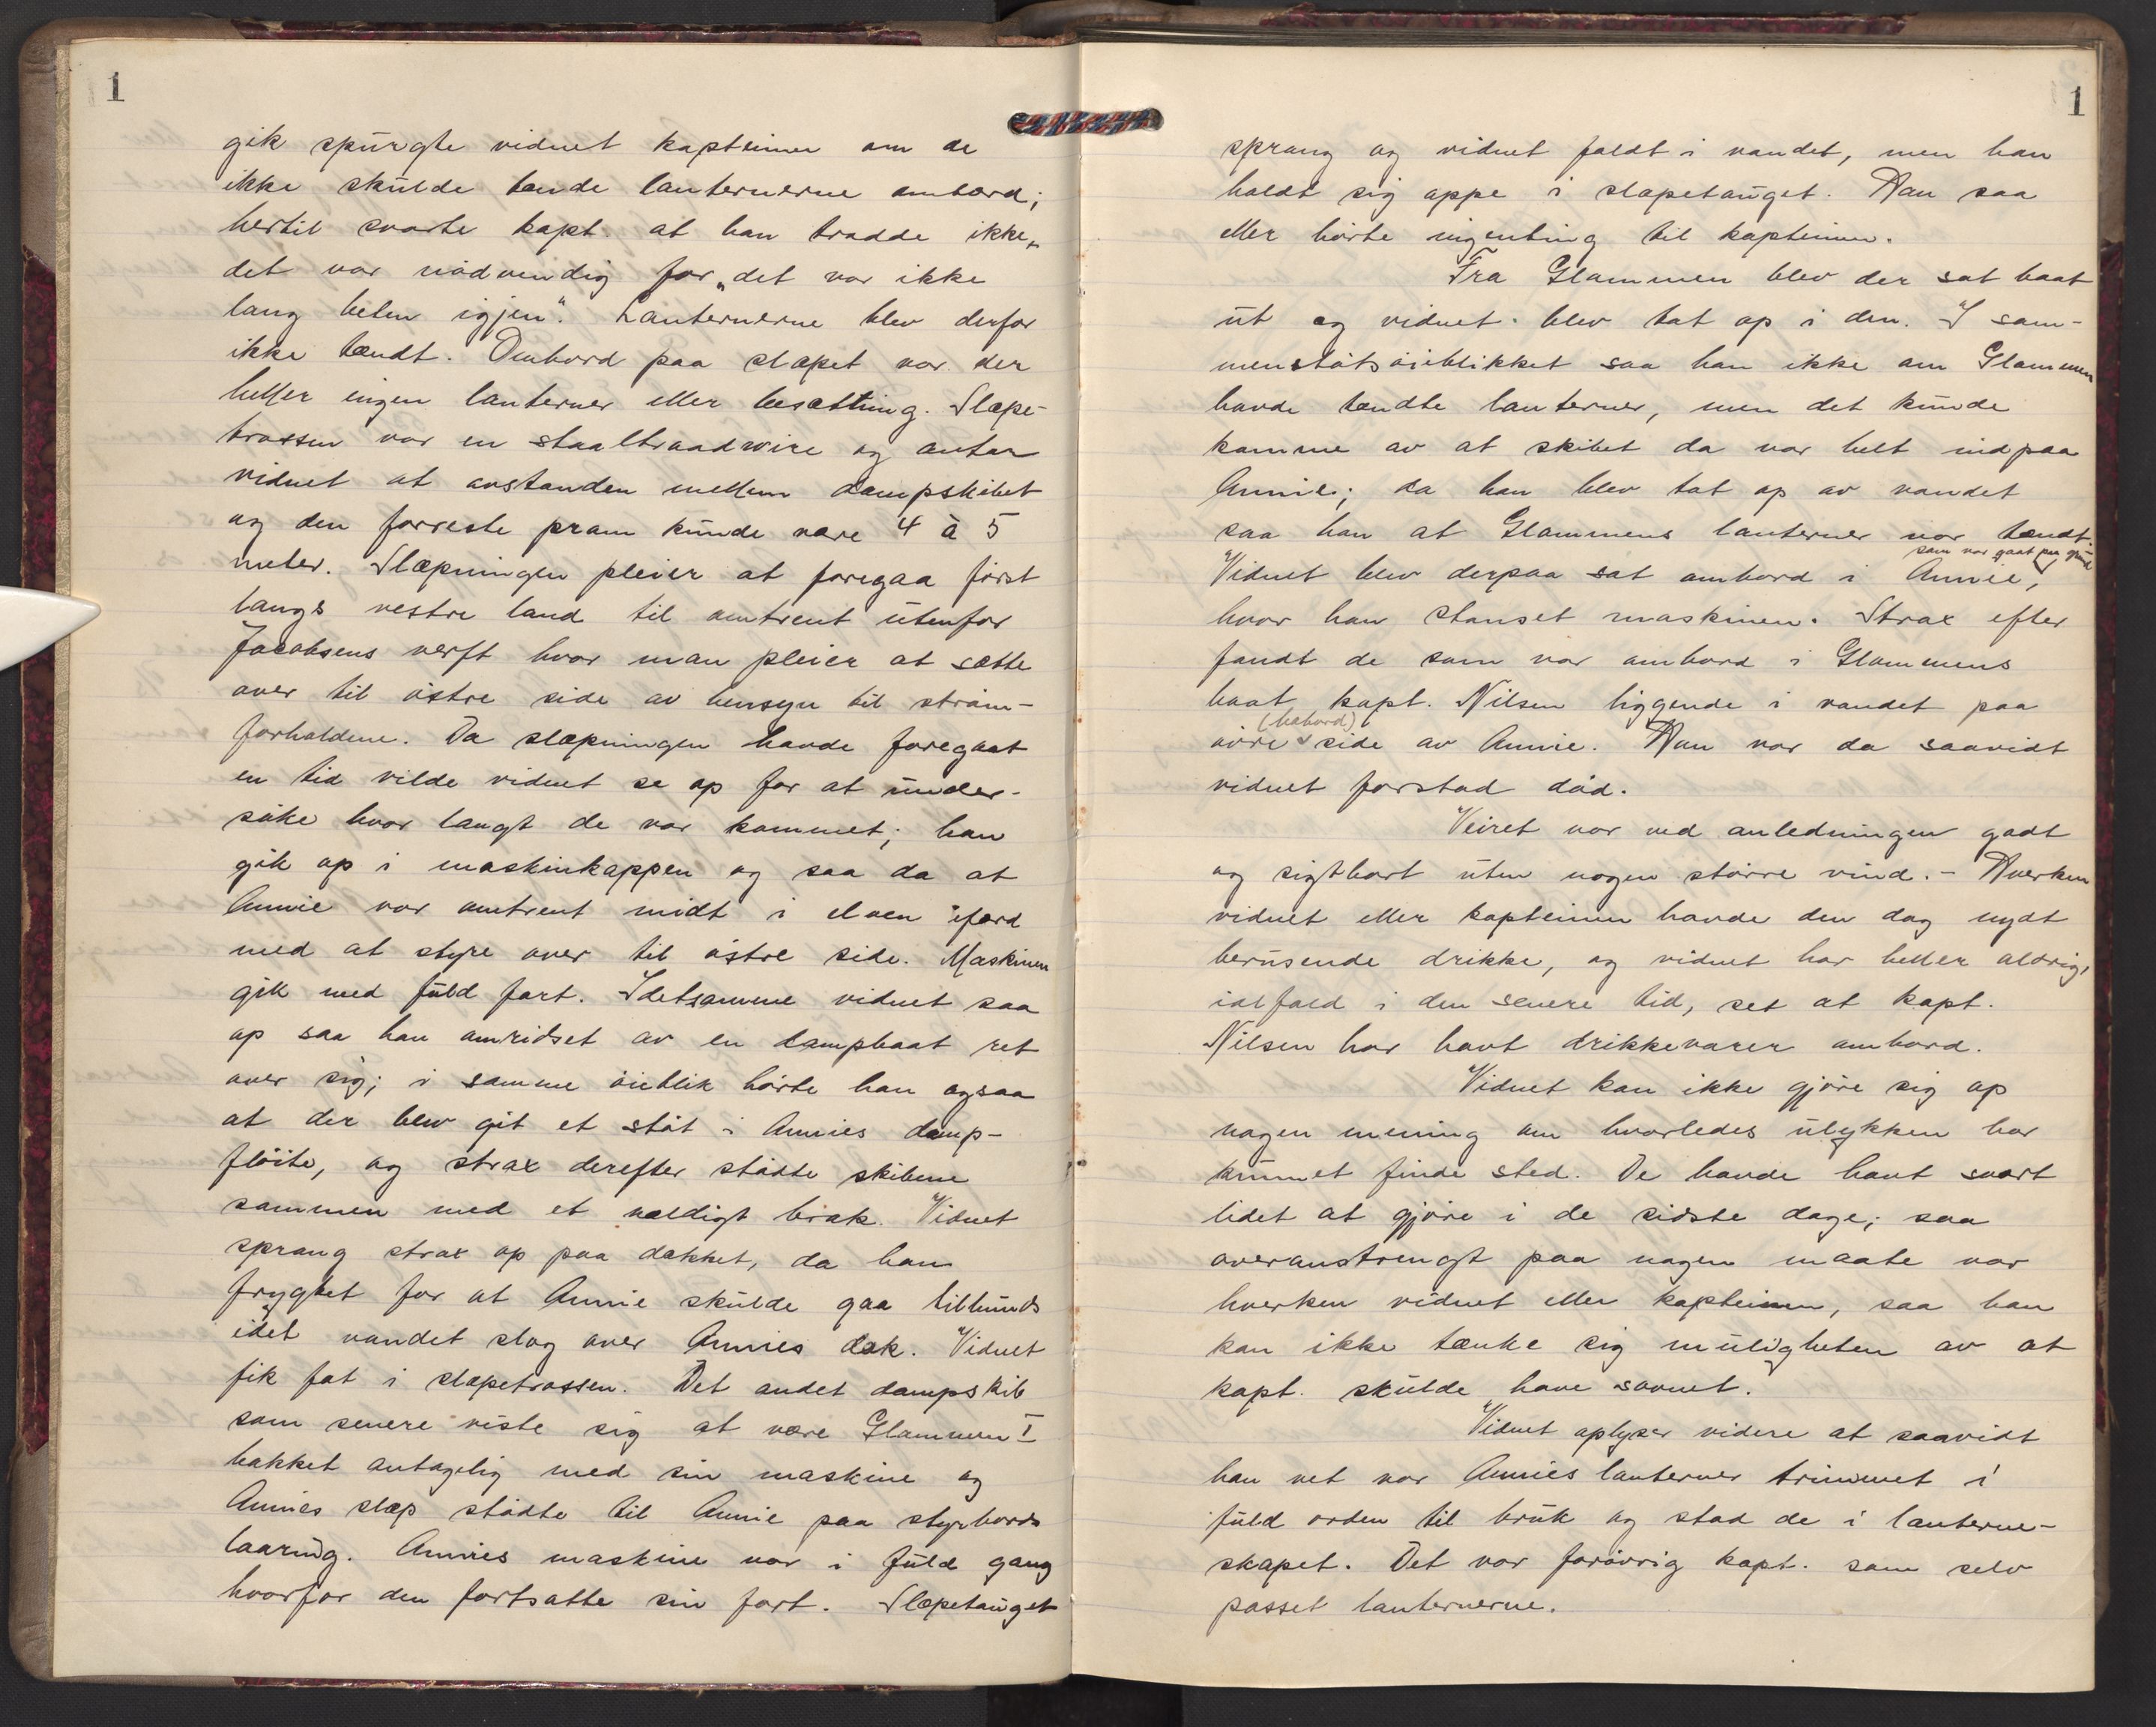 1
gik spurgte vidnet kapteinen om de
ikke skulde tænde lanternerne ombord;
hertil svarte kapt. at han trodde ikke
det var nødvendig for „det var ikke
lang biten igjen“. Lanternerne blev derfor
ikke tændt. Ombord paa slæpet var der
heller ingen lanterner eller besætning. Slæpe-
trossen var en staaltraadwire og antar
vidnet at avstanden mellem dampskibet
og den forreste pram kunde være 4 à 5
meter. Slæpningen pleier at foregaa først
langs vestre land til omtrent utenfor
Jacobsens verft hvor man pleier at sætte
over til østre side av hensyn til strøm-
forholdene. Da slæpningen havde foregaat
en tid vilde vidnet se op for at under-
søke hvor langt de var kommet; han
gik op i maskinkappen og saa da at
Annie var omtrent midt i elven ifærd
med at styre over til østre side. Maskinen
gik med fuld fart. Idetsamme vidnet saa
op saa han omridset av en dampbaat ret
over sig; i samme øieblik hørte han ogsaa
at der blev git et støt i Annies damp-
fløite, og strax derefter stødte skibene
sammen med et vældigt brak. Vidnet
sprang strax op paa dækket, da han
frygtet for at Annie skulde gaa tilbunds
idet vandet slog over Annies dæk. Vidnet
fik fat i slæpetrossen. Det andet dampskib
som senere viste sig at være Glommen I
bakket antagelig med sin maskine og
Annies slæp stødte til Annie paa styrbords
laaring. Annies maskine var i fuld gang
hvorfor den fortsatte sin fart. Slæpetauget
1
sprang og vidnet faldt i vandet, men han
holdt sig oppe i slæpetauget. Han saa
eller hørte ingenting til kapteinen.
Fra Glommen blev der sat baat
ut og vidnet blev tat op i den. I sam-
menstøtsøieblikket saa han ikke om Glommen
havde tændte lanterner, men det kunde
komme av at skibet da var helt indpaa
Annie; da han blev tat op av vandet
saa han at Glommens lanterner var tændt.
som var gaat paa grund
Vidnet blev derpaa sat ombord i Annie,
hvor han stanset maskinen. Strax efter
fandt de som var ombord i Glommens
baat kapt. Nilsen liggende i vandet paa
(babord)
øvre side av Annie. Han var da saavidt
vidnet forstod død.
Veiret var ved anledningen godt
og sigtbart uten nogen større vind. - Hverken
vidnet eller kapteinen havde den dag nydt
berusende drikke, og vidnet har heller aldrig,
ialfald i den senere tid, set at kapt.
Nilsen har havt drikkevarer ombord.
Vidnet kan ikke gjøre sig op
nogen mening om hvorledes ulykken har
kunnet finde sted. De havde havt svært
lidet at gjøre i de sidste dage; saa
overanstrengt paa nogen maate var
hverken vidnet eller kapteinen, saa han
kan ikke tænke sig muligheten av at
kapt. skulde have sovnet.
Vidnet oplyser videre at saavidt
han vet var Annies lanterner trimmet i
fuld orden til bruk og stod de i lanterne-
skapet. Det var forøvrig kapt. som selv
passet lanternerne.